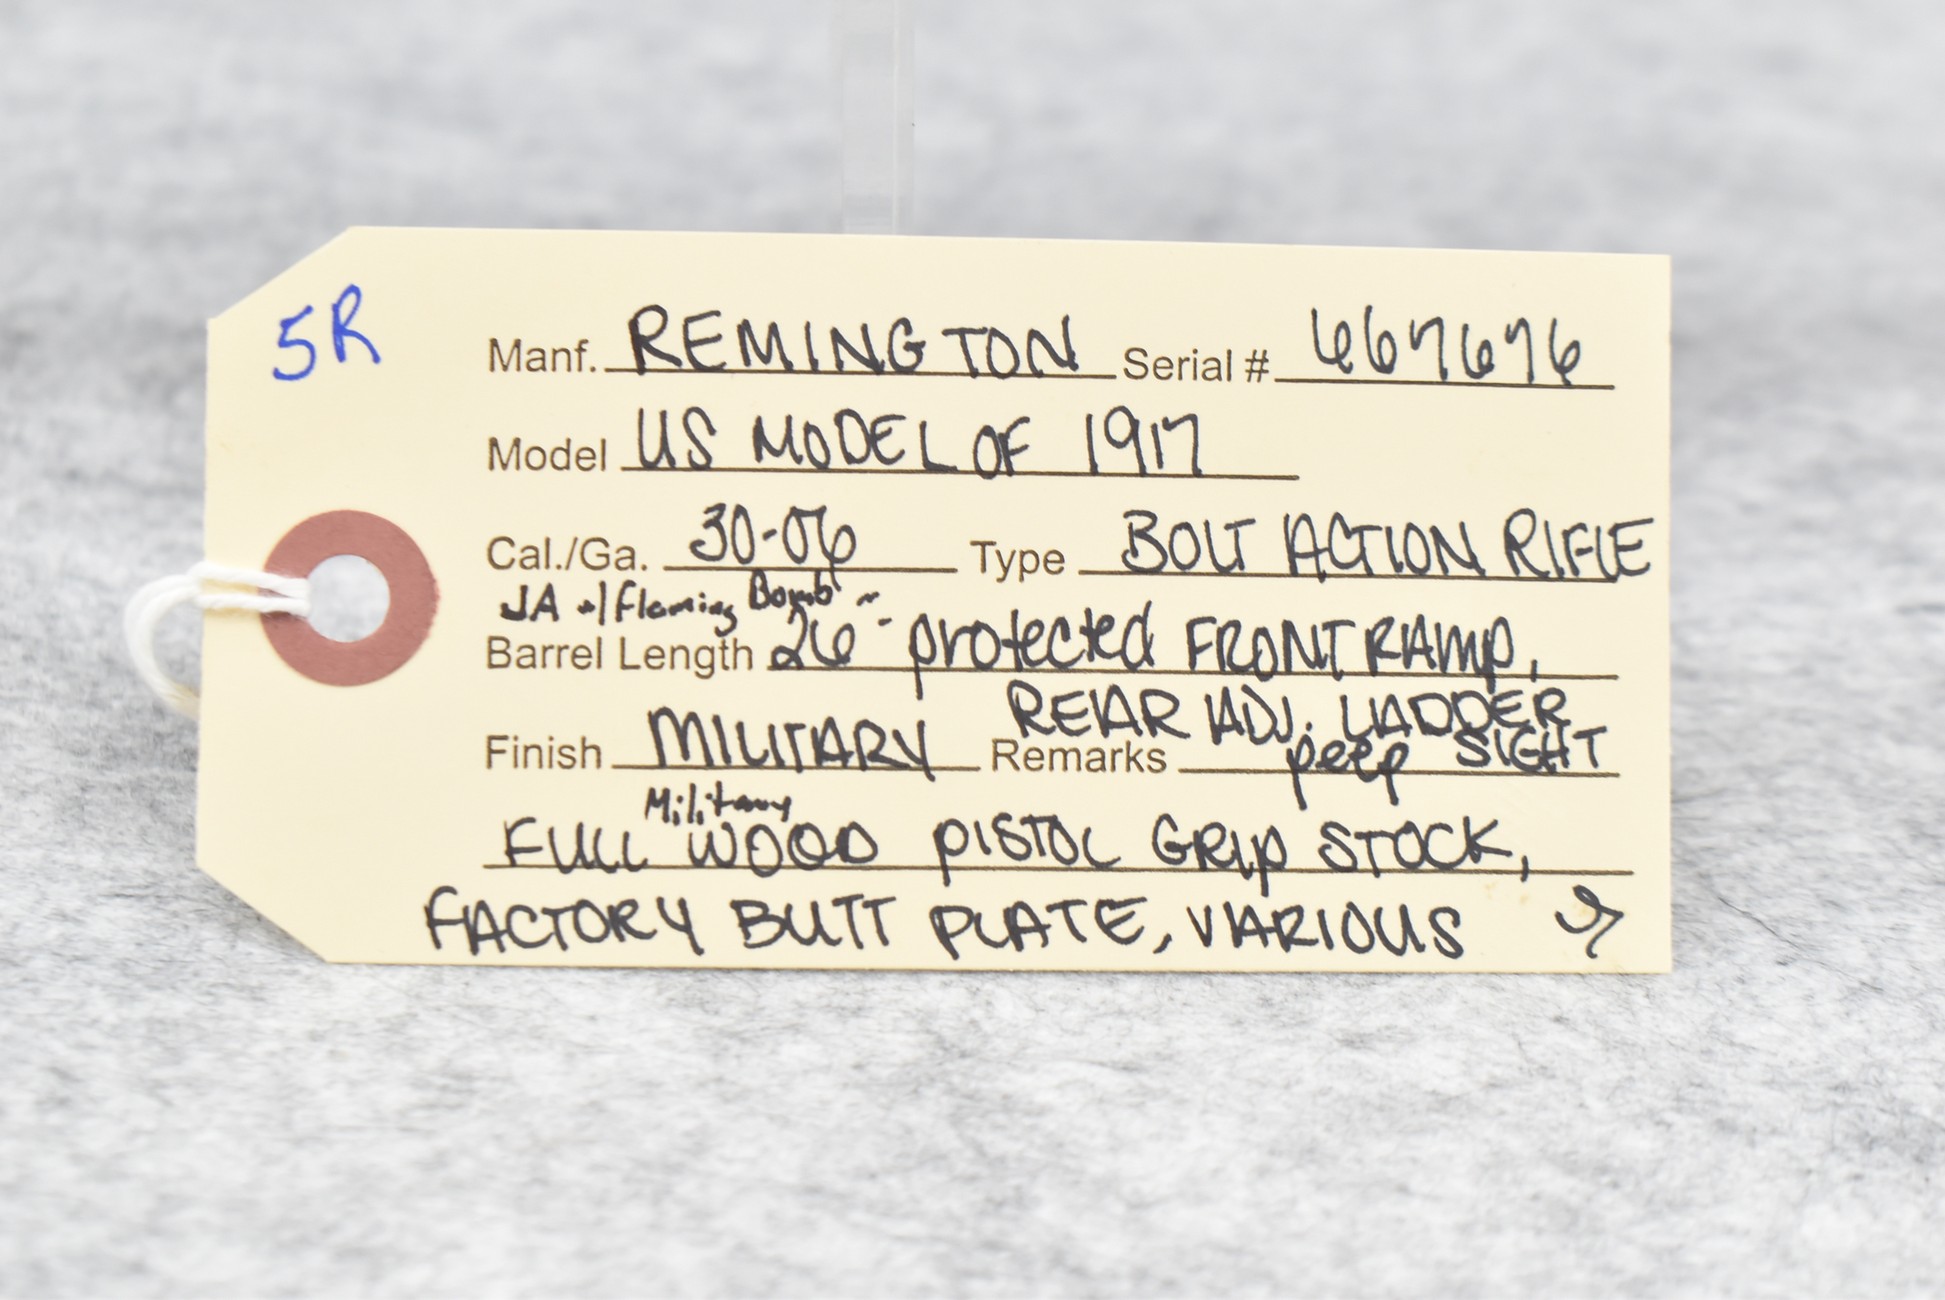 5R
Manf. REMINGTON Serial # 667676
Model US MODEL OF 1917
Cal./Ga. 30-06 Type BOLT ACTION RIFLE
JA w/ Flaming Bomb ~
Barrel Length 26" protected FRONT RAMP,
REAR ADJ. LADDER
Finish MILITARY Remarks peep SIGHT
Military
FULL WOOD PISTOL GRIP STOCK,
FACTORY BUTT PLATE, VARIOUS